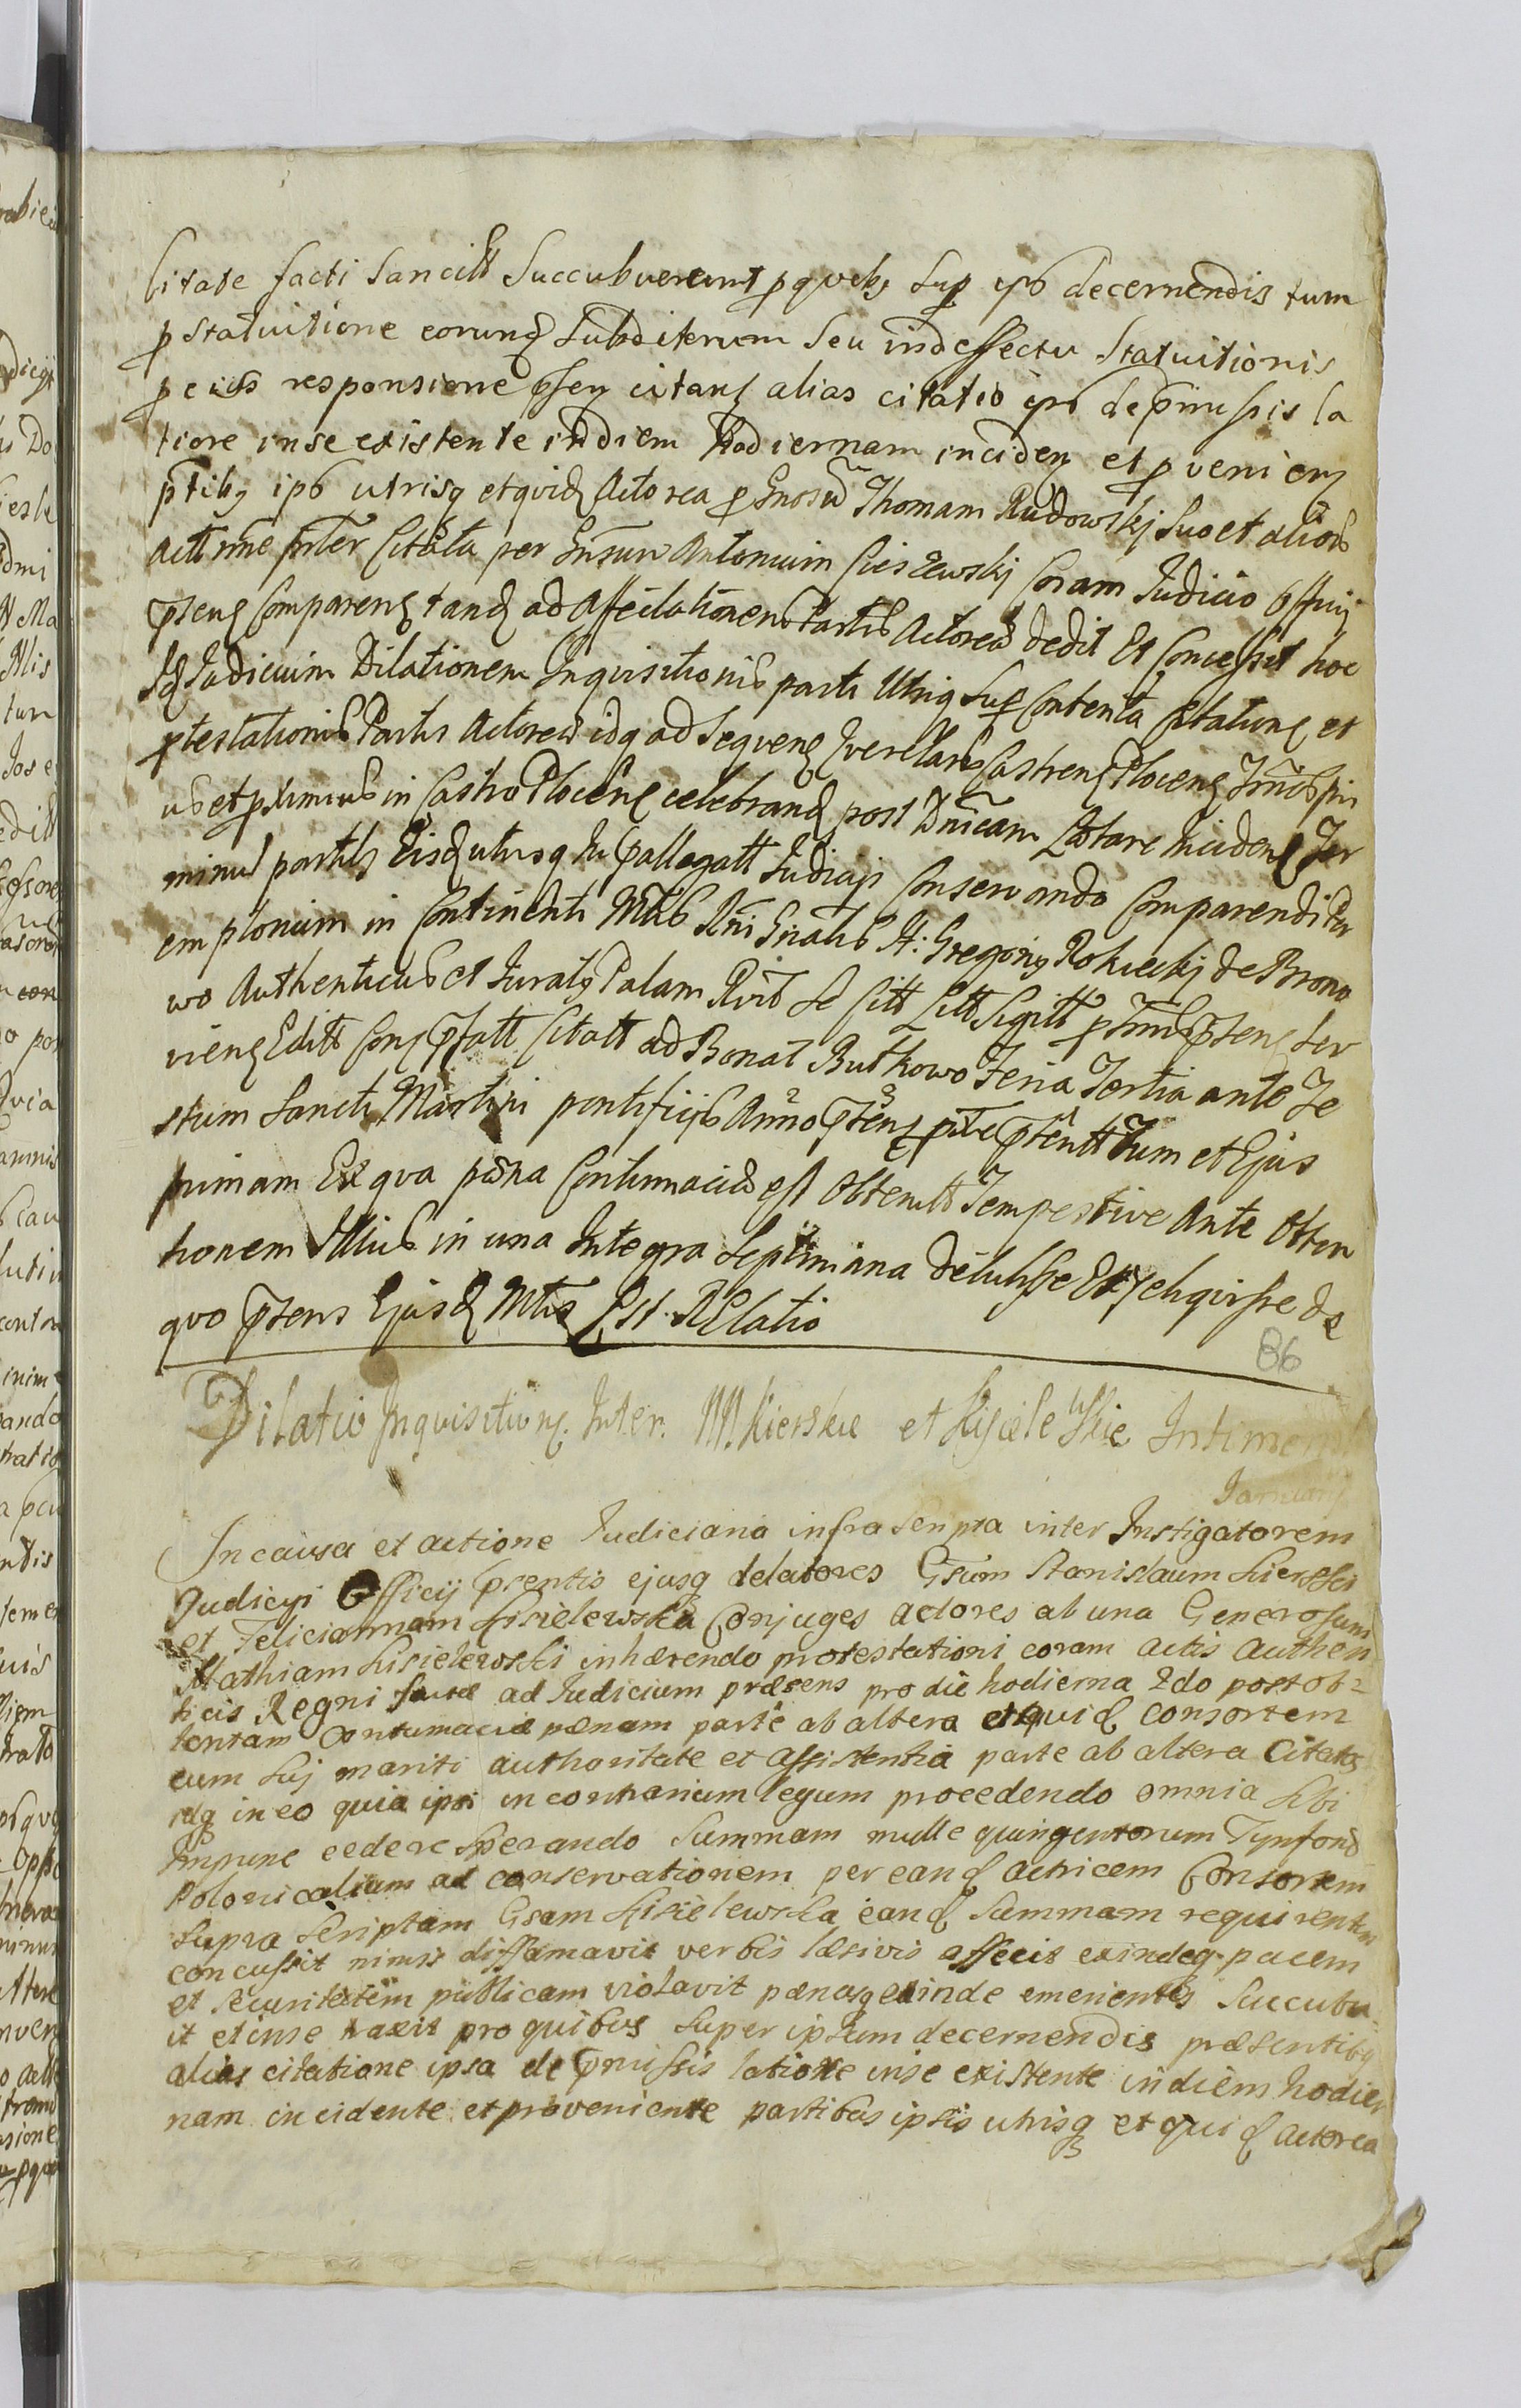 litate facti sancitt succubuerunt p quibs sup ipb decernendis tum
p statuitione eorunq subditorum seu indeffectu statuitionis
p eius responsione psen citanq alias citatio ipb depmissis la
tione inse existente indiem hodiernam inciden et p venien
ptibs ipb utrisq etquid Actorea p Gnosum Thomam Rudowskj suo et aliorb
Actt nne Citata per Gnsum Antonium Cieszewskj Coram Judicio Officij
psens Comparens tanq ad Affectationem Partis Actoreæ dedit Et Concessit hoc
Judicium Dilationem Inquisitionis parti Utriq sup Contenta Citations et
ptestationis Partis Actoreæ idq ad sequens Querelars Castrens Plocens Trnis pri
us et pximius in Castro Plocens celebrand post Dnicam Lætare Incidens Ter
minus partibs Eisd utrisq In pallegatt Judicijs Conservando Comparendi Pér
emptorium in Continenti Mtis Rni Gnalis M: Gregorius Rokickj de Brono
wo Authenticus et Juratus Palam Rvit se Citt Litt Sigitt p psens ser
viens Editt Cons pfatt Citatt ad Bona Ruthowo Feria Tertia ante Fe
stum Sancti Martini pontificijs Anno ptens ptentt Tum et Ejus
primam Ex qua pæna Contumaciæ est Obtentt Tempestive Ante Obten
tionem Illius in una Integra Septimana detulisse Et reliquisse de
quo psens Ejusd Mtis Est RElatio
86
Dilatio Inquisitions. Inter. M Kierskie et Kisielewskie Intimen
Januarij
In causa et actione Judiciaria infrascripta inter Instigatorem
Judicyi Officij psentis ejusq delatores Gsum Stanislaum Kierski
et Feliciannam Kisielewska Conjuges actores ab una Generosum
Mathiam Kisielewski inhærendo protestationi coram actis authen
ticis Regni factæ ad Judicium præsens pro die hodierna 2do post ob=
tentam Contumaciæ pænam parte ab altera etquid consortem
cum sui mariti authoritate et assistentia parte ab altera Citatos
idq in eo quia ipsi in contrarium legum procedendo omnia sibi
Impune cedere sperando Summam mille quingentorum Tynfonð
Polonicalium ad conservationem per eand actricem Consortem
supra scriptam Gsam Kisielewska eand Summam requirentem
concussit nimis diffamavit verbis læsivis affecit exindeq pacem
et securitatem publicam violavit pænasq exinde emerientes succubu
it et in se traxit pro quibus super ipsum decernendis præsentibq
alias citatione ipsa de pmissis latione inse existente in diem hodier
nam incidente et proveniente partibus ipsis utrisq et quid actorea